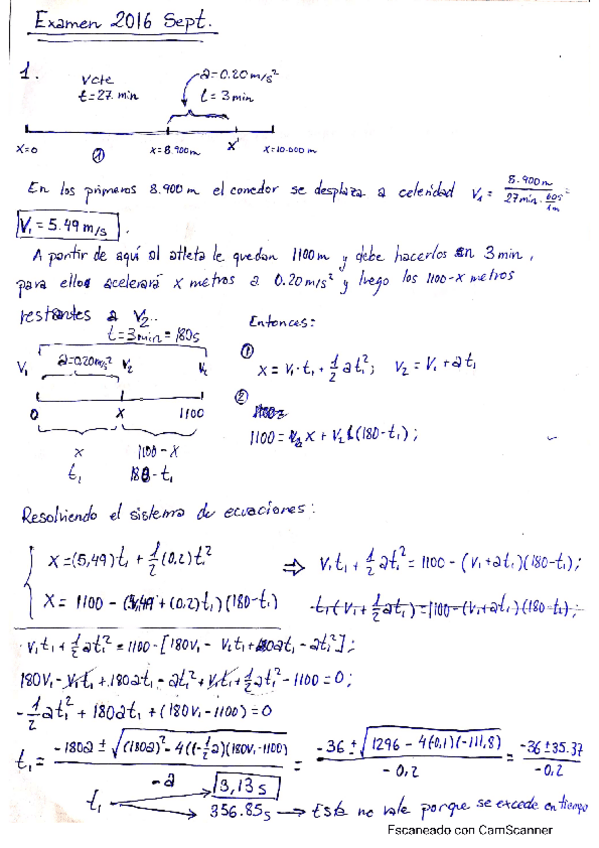 Examen 2016 Sept.
1. Vcte a=0.20 m/s²
t=27 min t=3 min
x=0 ① x=8.900m x' x=10.000 m
En los primeros 8.900m el corredor se desplaza a celeridad V₁ = 8.900m / 27min · 60s/1m =
V₁ = 5.49 m/s.
A partir de aquí al atleta le quedan 1100m y debe hacerlos en 3 min,
para ello acelerará x metros a 0.20 m/s² y luego los 1100-x metros
restantes a V₂.
Entonces:
t=3min=180s
V₁ a=0.20m/s² V₂ V₂
0 x 1100
x 1100-x
t₁ 180-t₁
① x = V₁·t₁ + 1/2 at₁²; V₂ = V₁ + at₁
②
1100 = x + V₂(180-t₁);
Resolviendo el sistema de ecuaciones:
x=(5,49)t₁ + 1/2(0,2)t₁² ⇒ V₁t₁ + 1/2 at₁² = 1100 - (V₁+at₁)(180-t₁);
x = 1100 - (5,49 + (0,2)t₁)(180-t₁) t₁(V₁+1/2 at₁) = 1100-(V₁+at₁)(180-t₁);
V₁t₁ + 1/2 at₁² = 1100 - [180V₁ - V₁t₁ + 180at₁ - at₁²];
180V₁ - V₁t₁ + 180at₁ - at₁² + V₁t₁ + 1/2 at₁² - 1100 = 0;
-1/2 at₁² + 180at₁ + (180V₁ - 1100) = 0
t₁ = -180a ± √((180a)² - 4(-1/2 a)(180V₁-1100)) / -a = -36 ± √(1296 - 4(0,1)(-111,8)) / -0,2 = -36 ± 35.37 / -0,2
t₁ 3,13s
356.85s → Este no vale porque se excede en tiempo
Escaneado con CamScanner